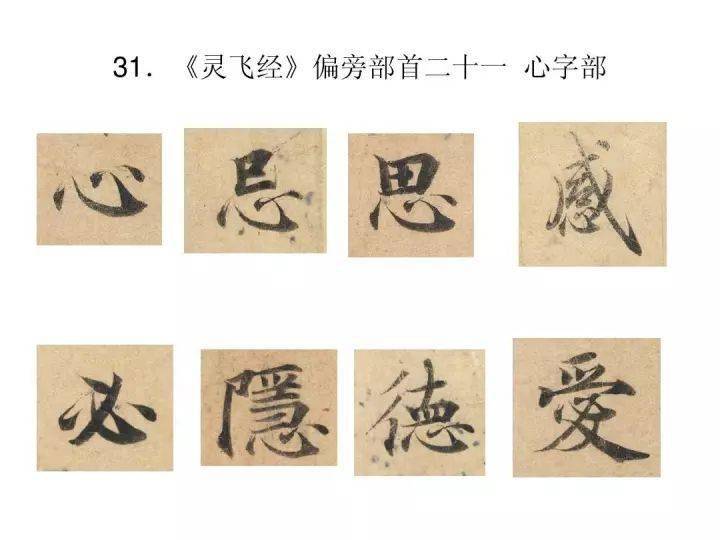 31. 《灵飞经》偏旁部首二十一 心字部
心 忌 思 感
必 隱 德 愛